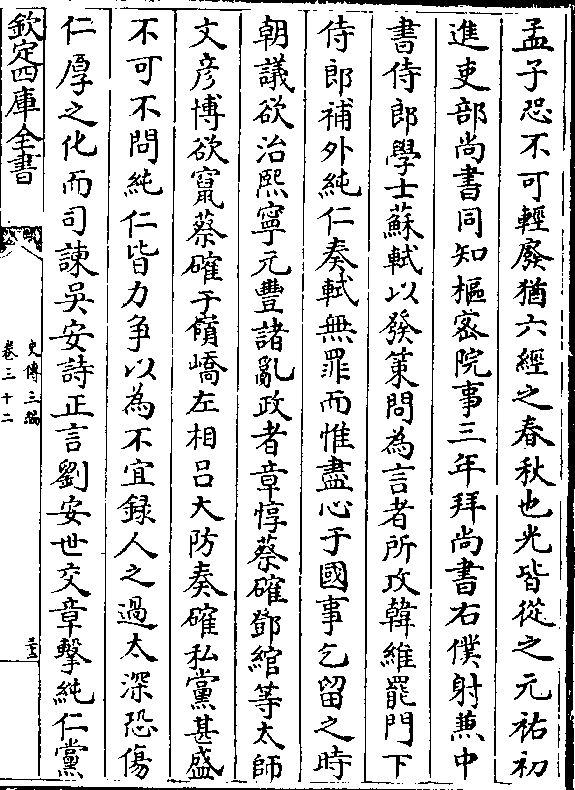 孟子恐不可輕廢猶六經之春秋也光皆從之元祐初
進吏部尚書同知樞密院事三年拜尚書右僕射兼中
書侍郎學士蘇軾以發策問為言者所攻韓維罷門下
侍郎補外純仁奏軾無罪而惟盡心于國事乞留之時
朝議欲治熙寧元豐諸亂政者章惇蔡確鄧綰等太師
文彦博欲竄蔡確于嶺嶠左相吕大防奏確私黨甚盛
不可不問純仁皆力争以為不宜録人之過太深恐傷
仁厚之化而司諫吳安詩正言劉安世交章擊純仁黨
欽定四庫全書
史傳三編
卷三十二